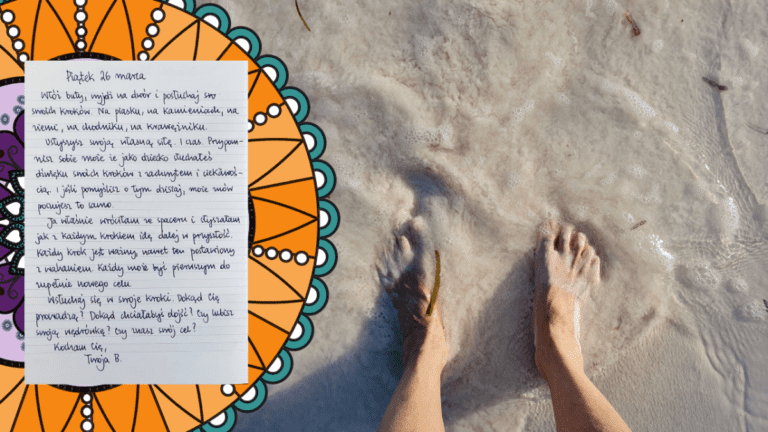 Piątek 26 marca
Włóż buty, wyjdź na dwór i posłuchaj
swoich kroków. Na piasku, na kamieniach, na
ziemi, na chodniku, na krawężniku.
Usłyszysz swoją własną siłę. I czas. Przypom-
nisz sobie może że jako dziecko słuchałeś
dźwięku swoich kroków z zadumą i ciekawoś-
cią. I jeśli pomyślisz o tym dzisiaj, może znów
poczujesz to samo.
Ja właśnie wróciłam ze spaceru i słyszałam
jak z każdym krokiem idę dalej w przyszłość.
Każdy krok jest ważny, nawet ten postawiony
z wahaniem. Każdy może być pierwszym do
zupełnie nowego celu.
Wsłuchaj się w swoje kroki. Dokąd Cię
prowadzą? Dokąd chciałabyś dojść? Czy lubisz
swoją wędrówkę? Czy znasz swój cel?
Kocham Cię,
Twoja B.